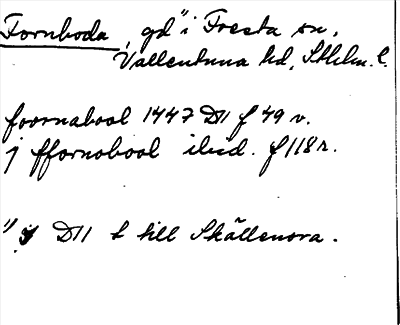 Fornboda, gd" i Fresta sn,
Vallentuna hd, Sthlm. l.
foornabool 1447 D11 f 49 v.
j ffornobool ibid. f 118 r.
") D11 b till Skällenora.